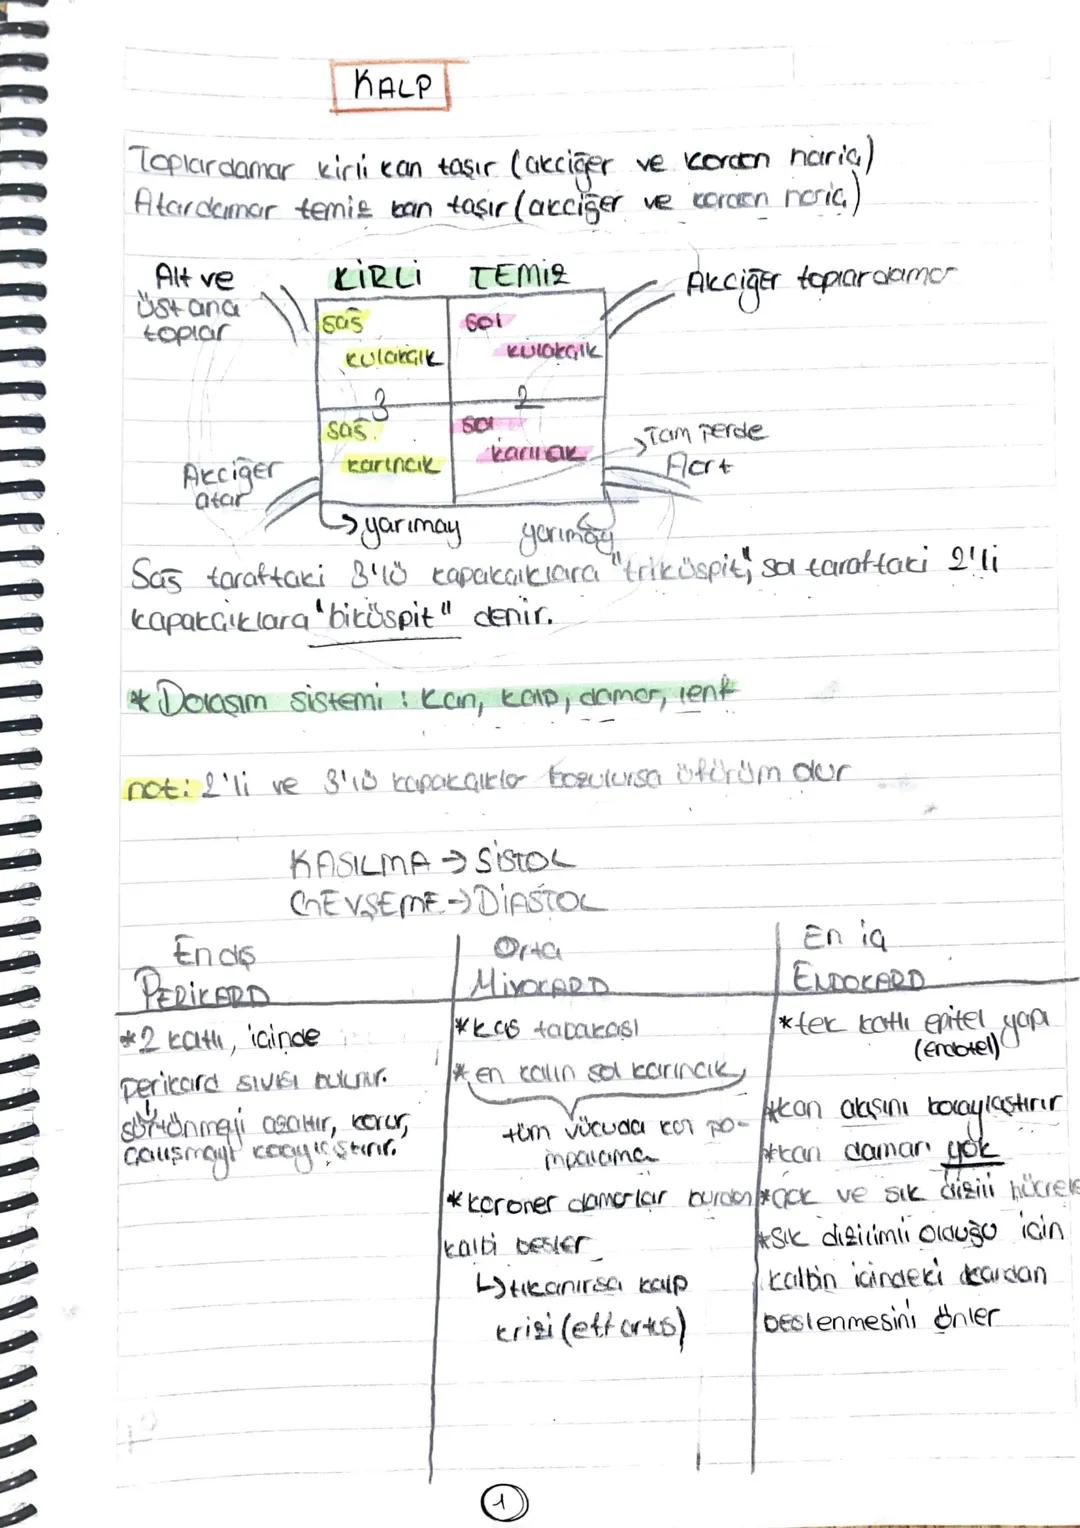 KALP
Toplardamar kirli kan taşır (akciğer ve kordon hariç)
Atardamar temiz kan taşır (akciğer ve kordon hariç)
Alt ve
üst ana
toplar
KİRLİ
TEMİZ
Akciğer toplardamar
sağ
kulakçık
sol
kulakçık
3
2
sağ
karıncık
sol
karıncık
Tam perde
Aort
Akciğer
atar
→ yarımay
yarımay
Sağ taraftaki 3'lü kapakçıklara "triküspit", sol taraftaki 2'li
kapakçıklara "biküspit" denir.
* Dolaşım sistemi : Kan, kalp, damar, lenf
not: 2'li ve 3'lü kapakçıklar bozulursa üfürüm olur
KASILMA → SİSTOL
GEVŞEME → DİASTOL
En dış
PERİKARD
*2 katlı, içinde
perikard sıvısı bulunur.
sürtünmeyi azaltır, korur,
çalışmayı kolaylaştırır.
Orta
MİYOKARD
*kas tabakası
*en kalın sol karıncık
tüm vücuda kan po-
mpalama
*koroner damarlar burdan
kalbi besler
↳ tıkanırsa kalp
krizi (
En iç
ENDOKARD
*tek katlı epitel yapı
(Endotel)
*kan akışını kolaylaştırır
*kan damarı yok
ve sık dizili hücreler
*Sık dizilimli olduğu için
kalbin içindeki kandan
beslenmesini önler
1